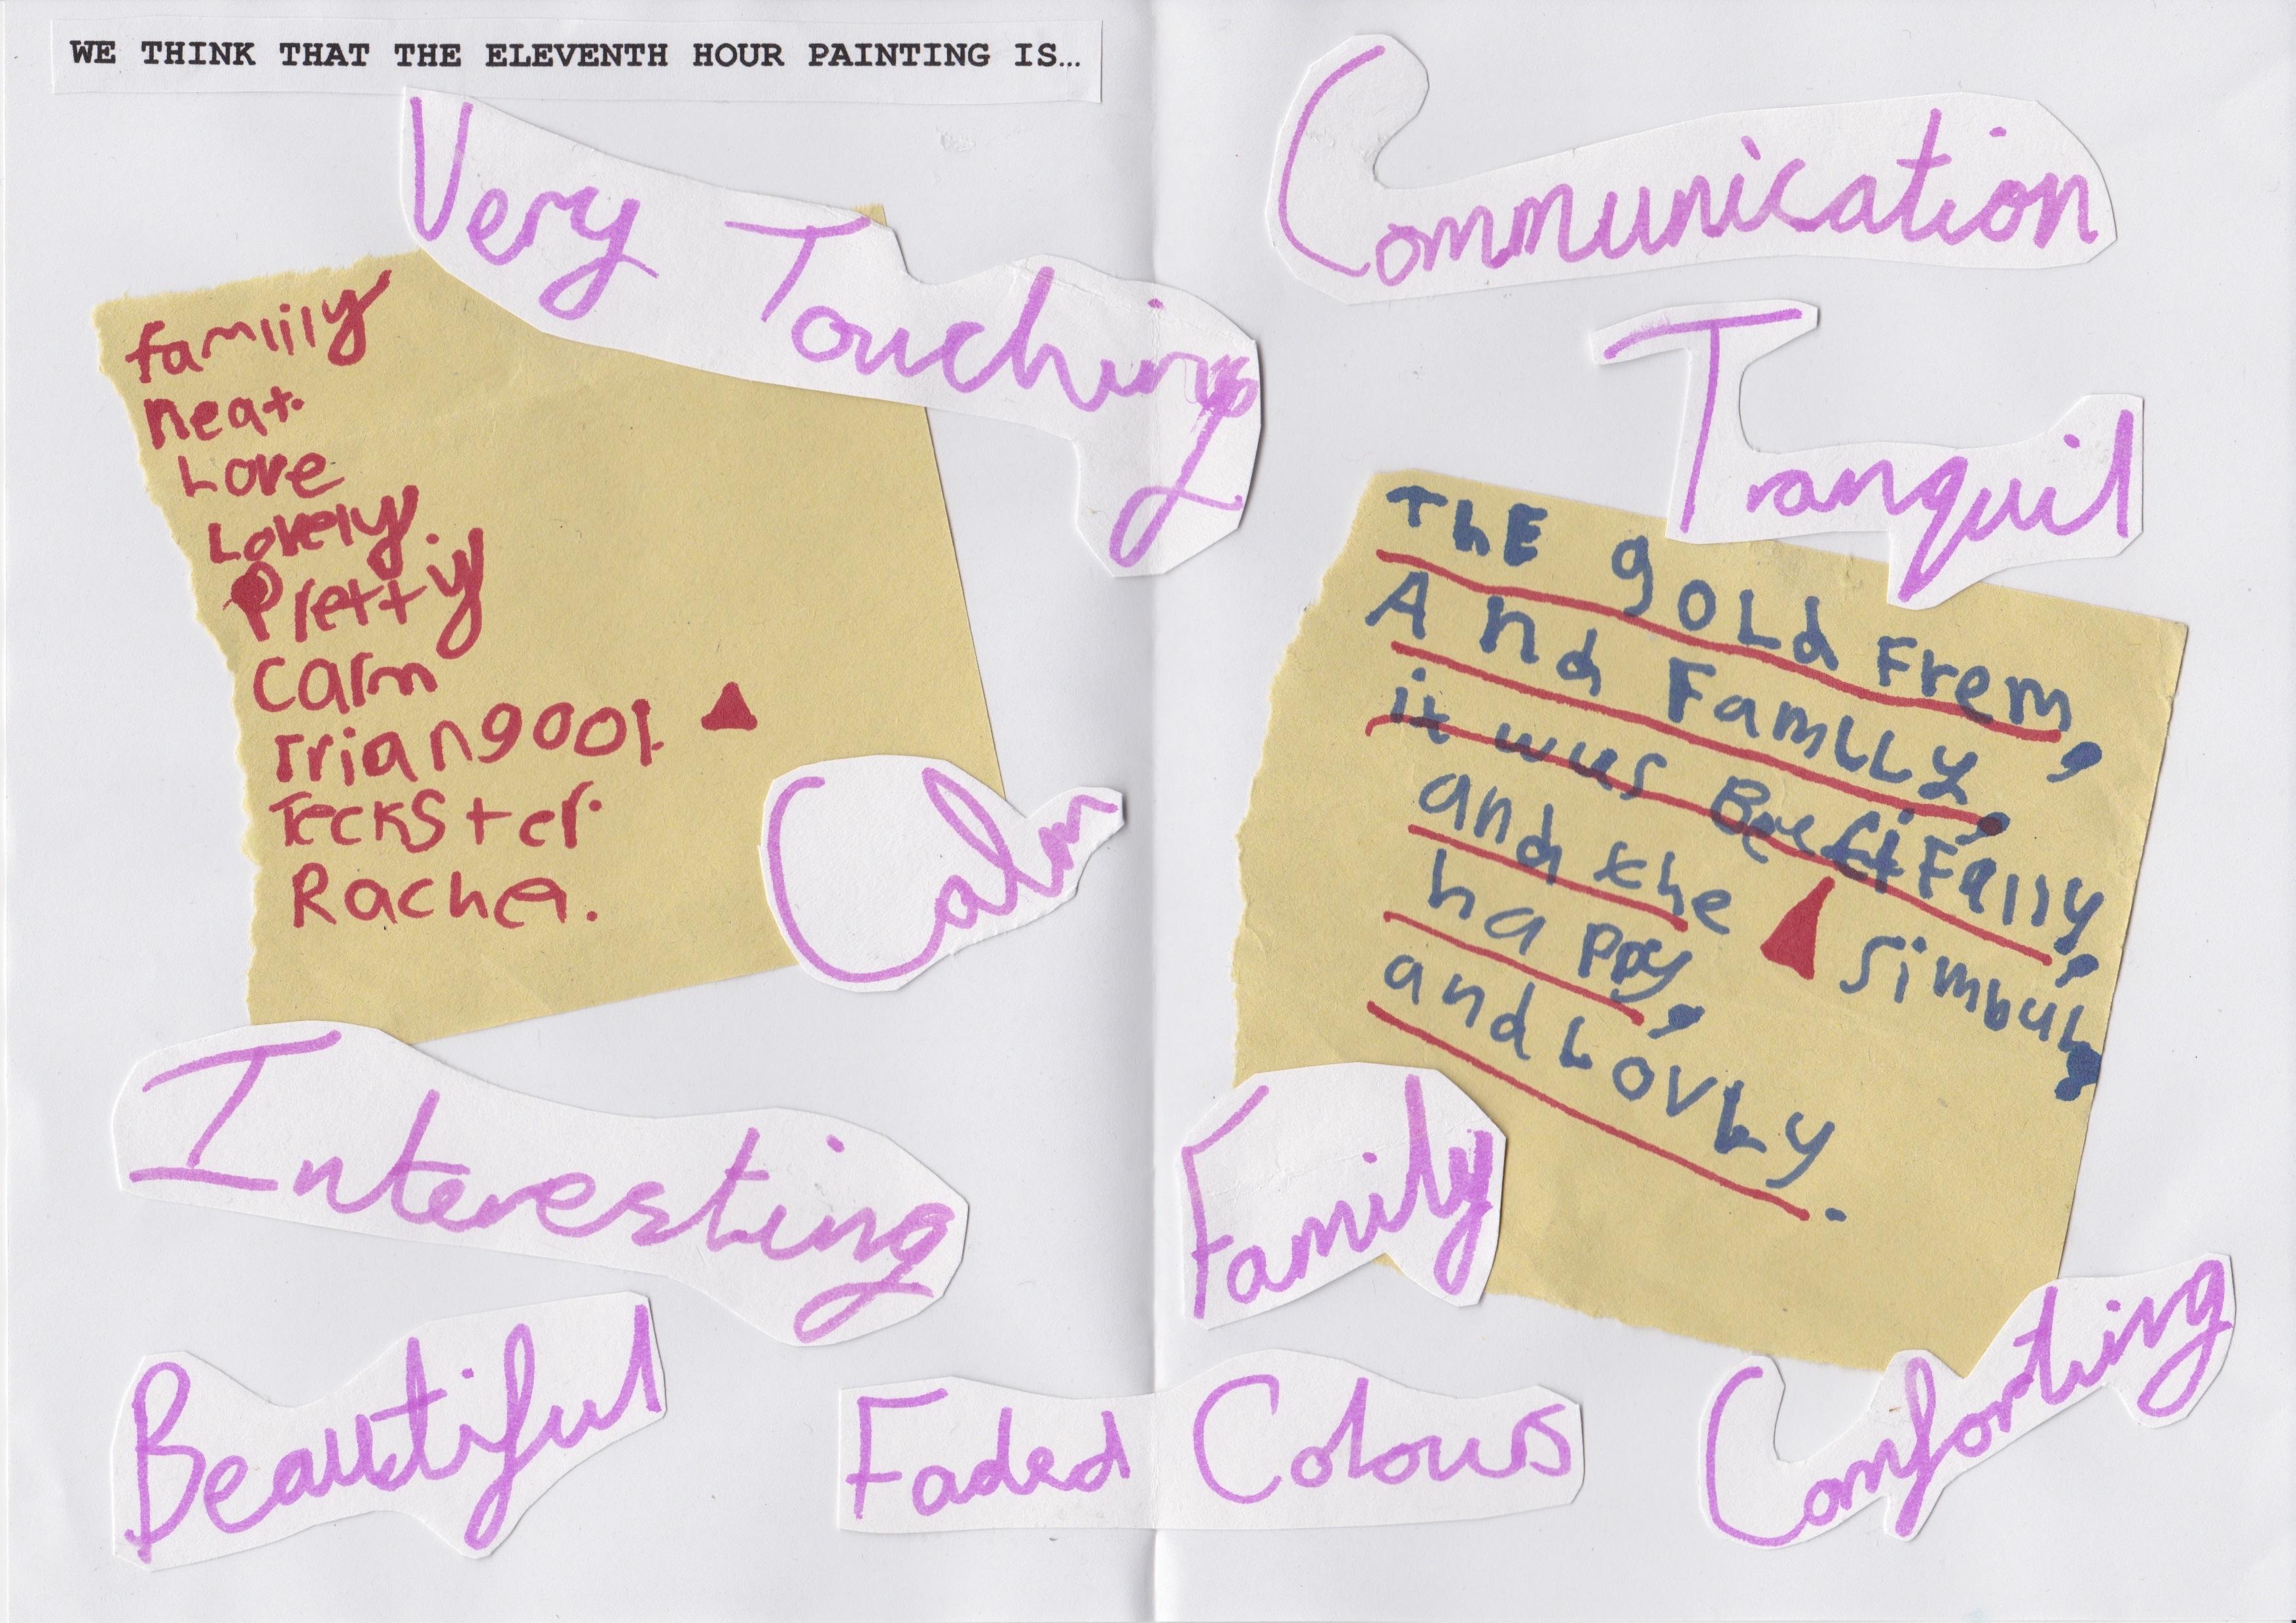 WE THINK THAT THE ELEVENTH HOUR PAINTING IS…
Very Touching
famiily
neat.
Love
Lovely.
Pretty
calm
Triangool.
Teckster.
Rachel.
Calm
Interesting
Beautiful
Faded Colours
Communication
Tranquil
ThE goLd Frem,
And FamLLy,
it wus
and the simbul,
happy,
and LovLy.
Family
Comforting